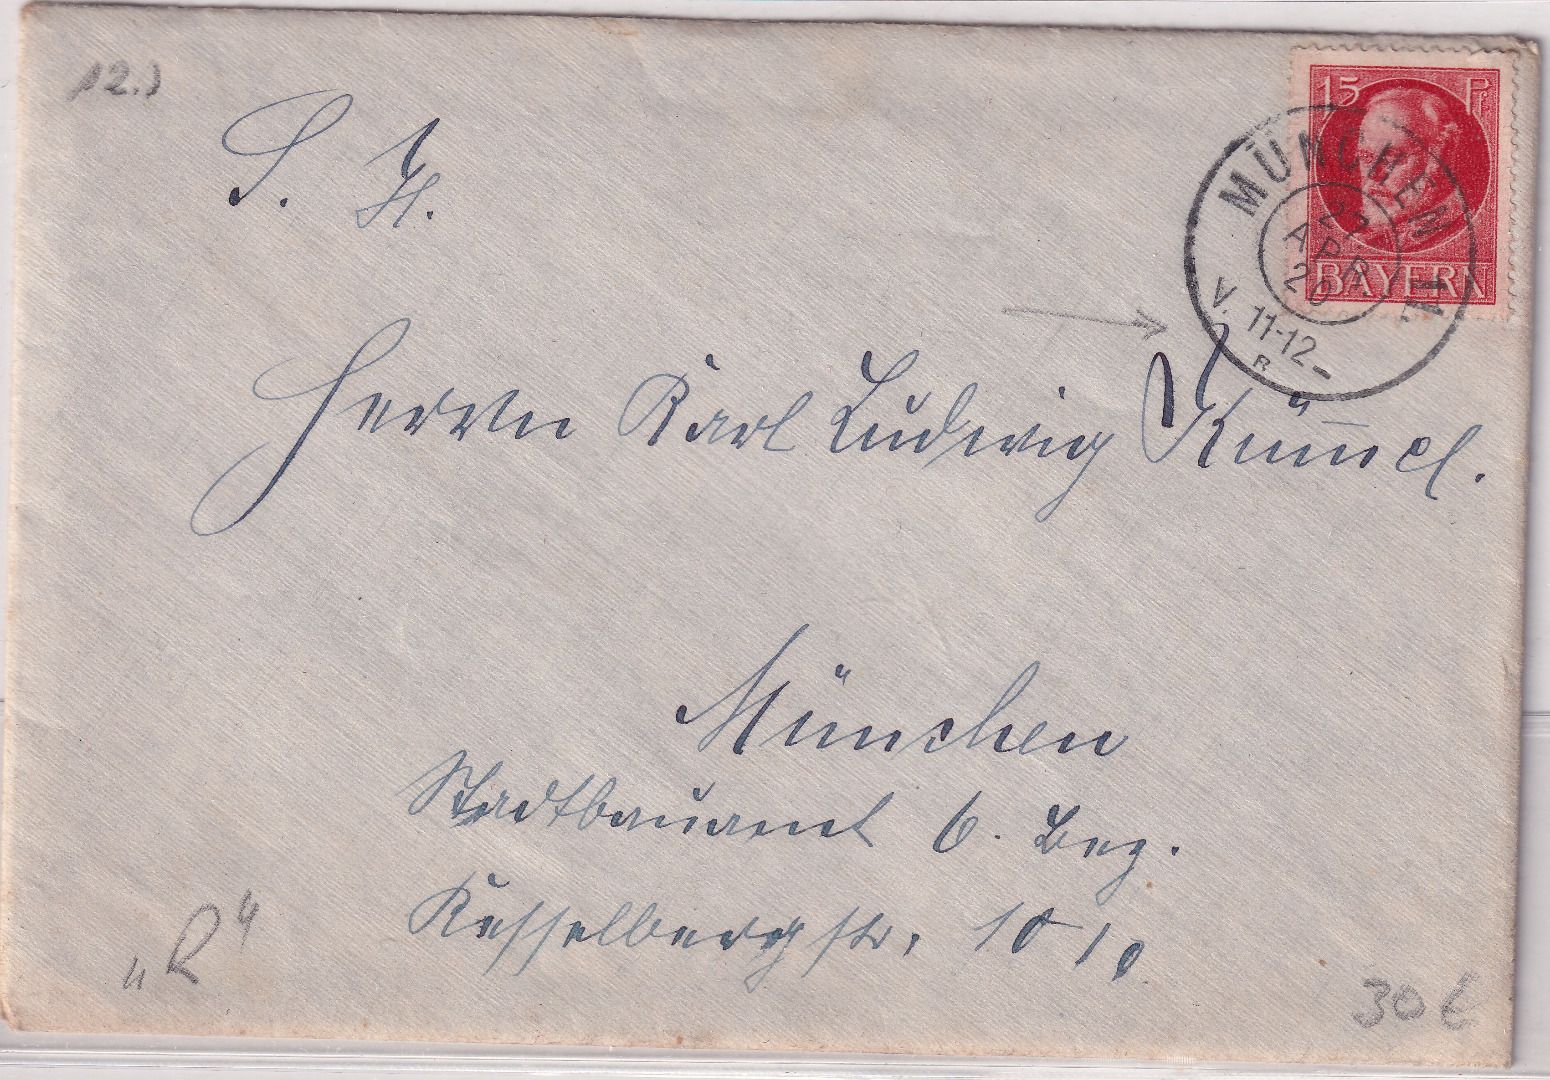 12.)
15 Pf
BAYERN
MÜNCHEN
27
APR
20
V. 11-12
R
S. H.
Herrn Karl Ludwig Kümmel.
München
Stadtbauamt 6. Bez.
Kesselbergstr. 10
„R“
30 €